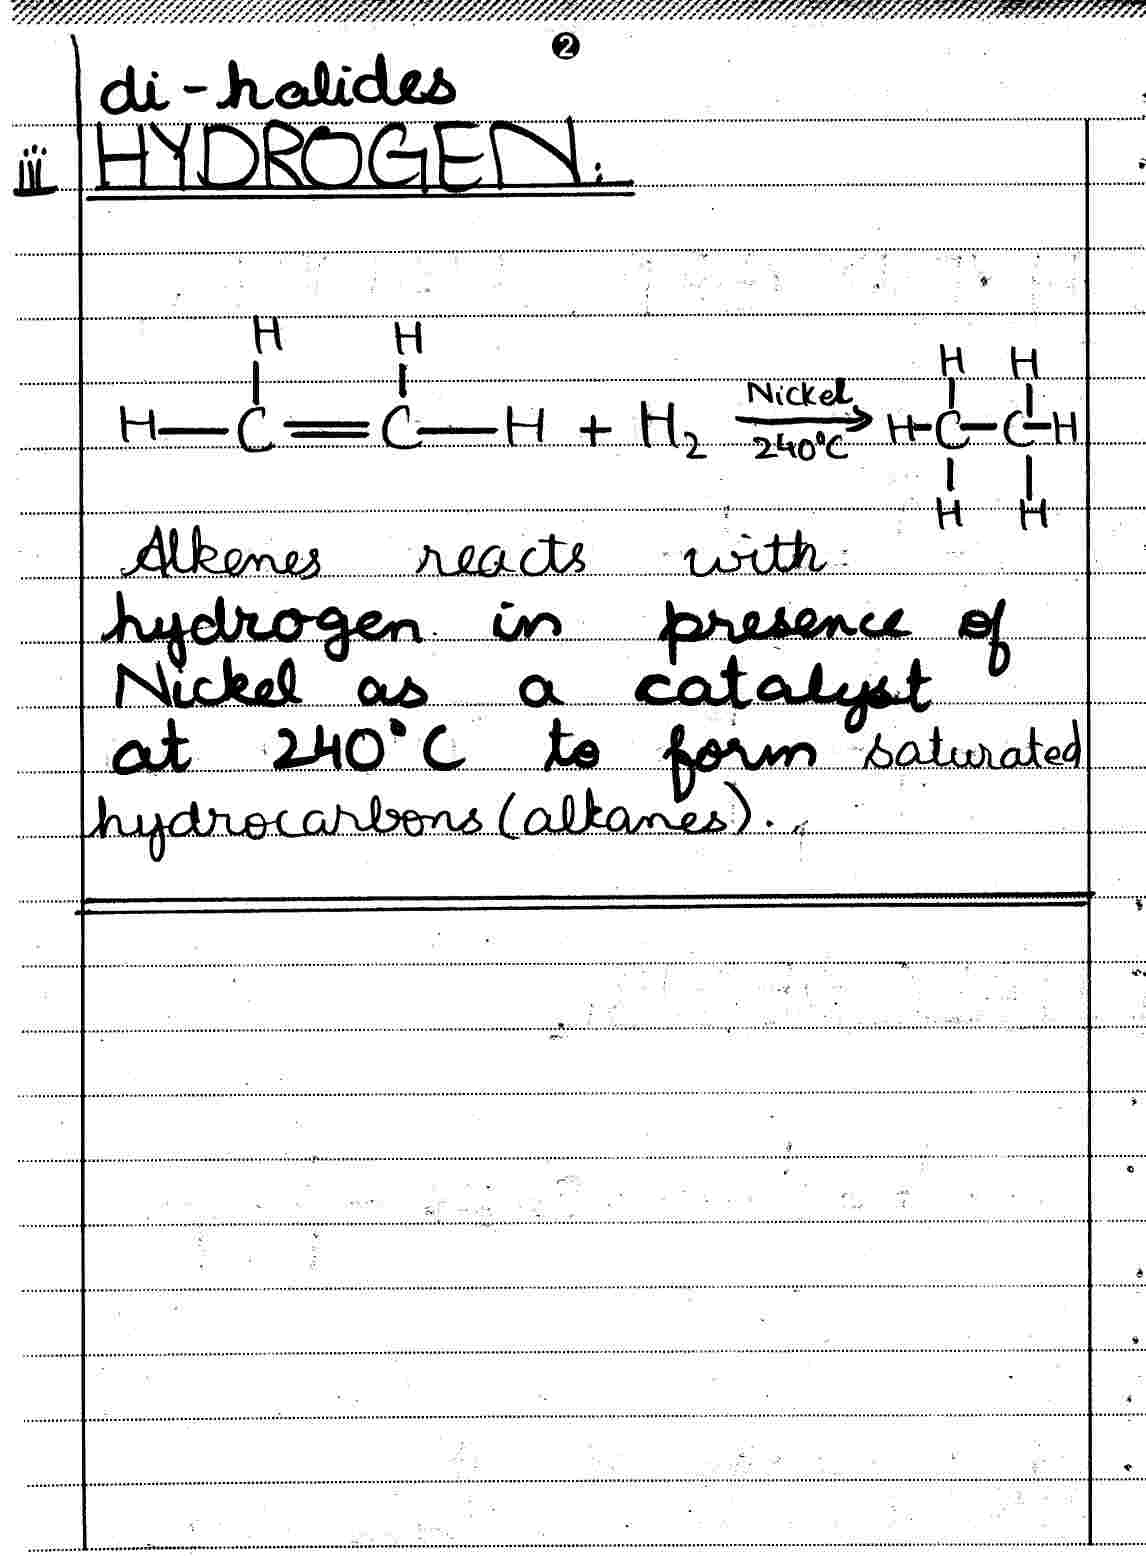 2
di-halides
iii HYDROGEN:
H H H H
H—C=C—H + H₂ Nickel 240°C H-C-C-H
H H
Alkenes reacts with
hydrogen in presence of
Nickel as a catalyst
at 240°C to form saturated
hydrocarbons (alkanes).